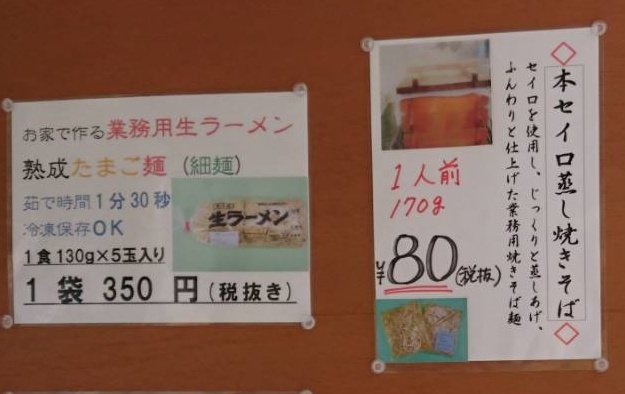 お家で作る業務用生ラーメン
熟成たまご麺（細麺）
茹で時間1分30秒
冷凍保存OK
1食130g×5玉入り
1袋 350 円（税抜き）
生ラーメン
◇本セイロ蒸し焼きそば◇
セイロを使用し、じっくりと蒸しあげ、
ふんわりと仕上げた業務用焼きそば麺
1人前
170g
¥80(税抜)